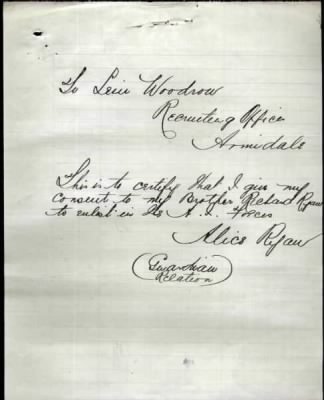 To Leiu Woodrow
Recruiting Officer
Armidale
This is to certify that I give my
consent to my Brother Richard Ryan
to enlist in the A. I. Forces
Alice Ryan
Guardian
Relation